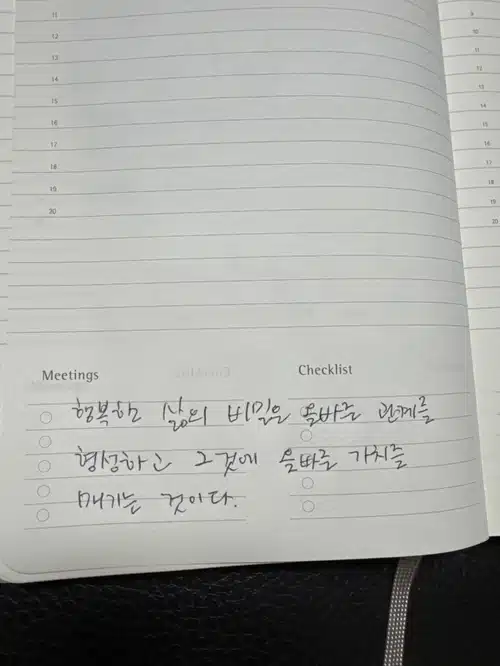 11
12
13
14
15
16
17
18
19
20
9
10
11
12
13
14
15
16
17
18
19
20
Meetings
Checklist
행복한 삶의 비밀은 올바른 관계를
형성하고 그것에 올바른 가치를
매기는 것이다.